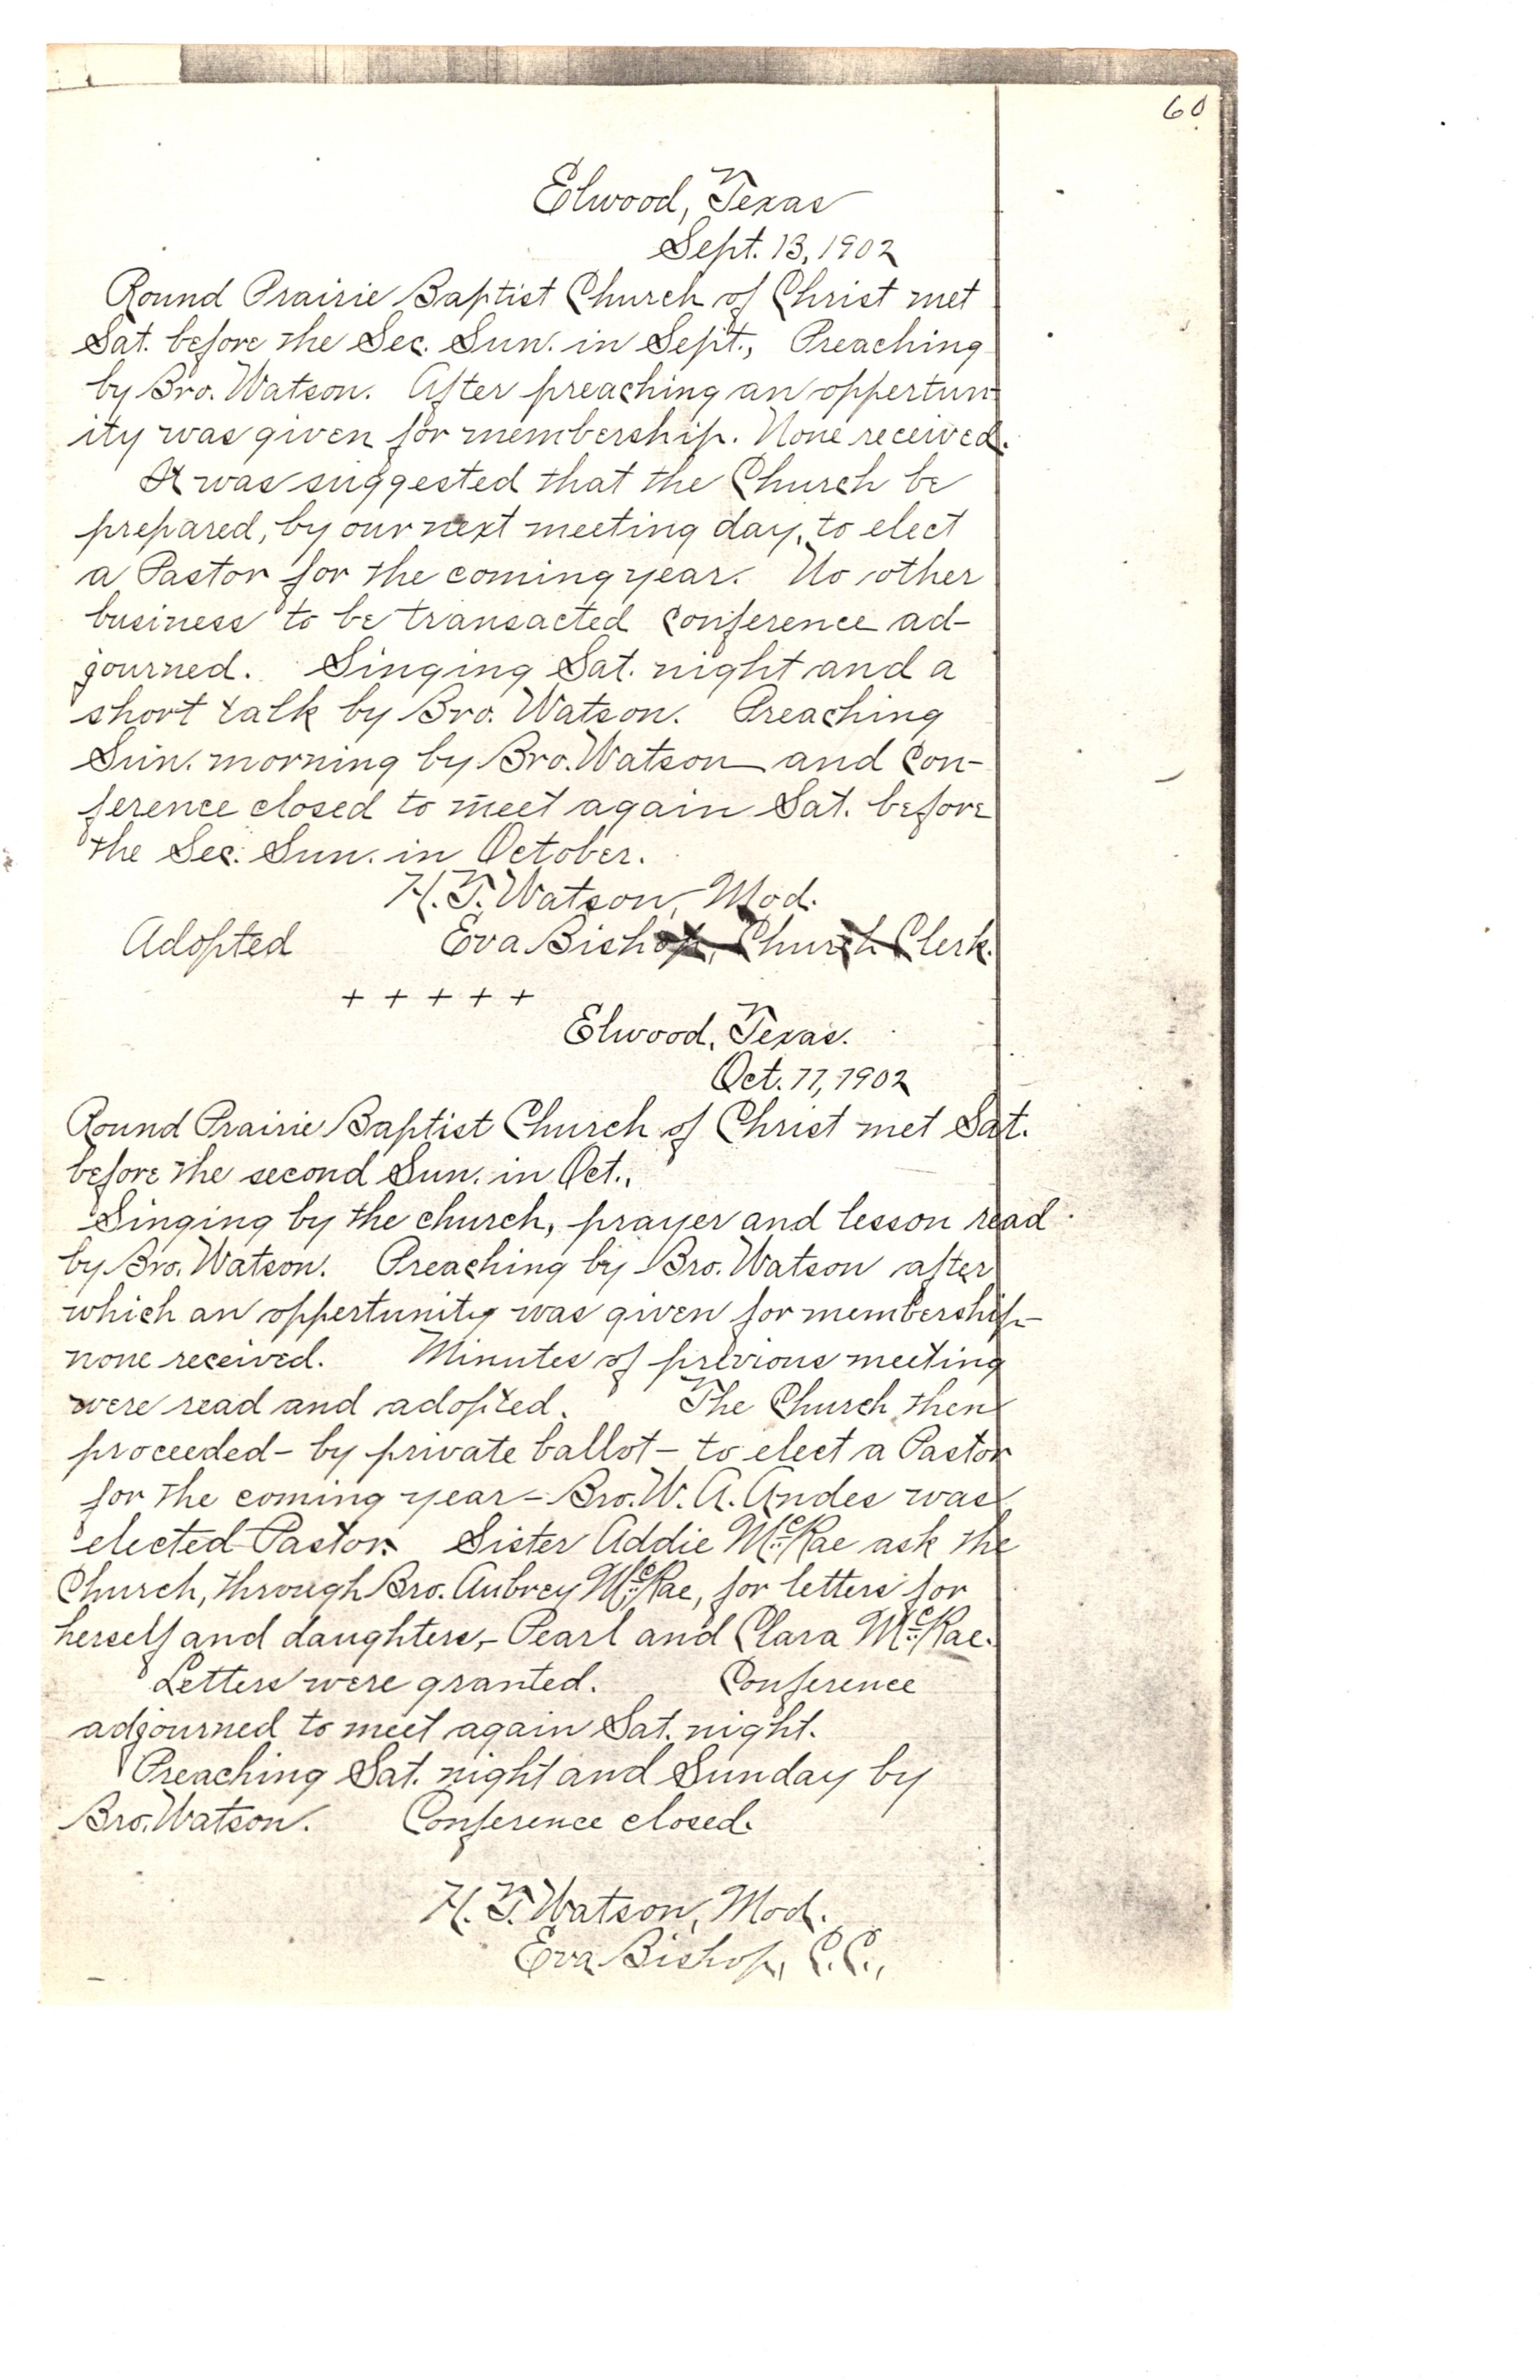 60
Elwood, Texas
Sept. 13, 1902
Round Prairie Baptist Church of Christ met
Sat. before the Sec. Sun. in Sept., Preaching
by Bro. Watson. After preaching an oppertun-
ity was given for membership. None received.
It was suggested that the Church be
prepared, by our next meeting day, to elect
a Pastor for the coming year. No other
business to be transacted Conference ad-
journed. Singing Sat. night and a
short talk by Bro. Watson. Preaching
Sun. morning by Bro. Watson and Con-
ference closed to meet again Sat. before
the Sec. Sun. in October.
H. T. Watson, Mod.
Adopted Eva Bishop, Church Clerk.
+ + + + +
Elwood, Texas.
Oct. 11, 1902
Round Prairie Baptist Church of Christ met Sat.
before the second Sun. in Oct.,
Singing by the church, prayer and lesson read
by Bro. Watson. Preaching by Bro. Watson after
which an oppertunity was given for membership-
none received. Minutes of previous meeting
were read and adopted. The Church then
proceeded - by private ballot - to elect a Pastor
for the coming year - Bro. W. A. Andes was
elected Pastor. Sister Addie McRae ask the
Church, through Bro. Aubrey McRae, for letters for
herself and daughters, - Pearl and Clara McRae.
Letters were granted. Conference
adjourned to meet again Sat. night.
Preaching Sat. night and Sunday by
Bro. Watson. Conference closed.
H. T. Watson, Mod.
Eva Bishop, C.C.,